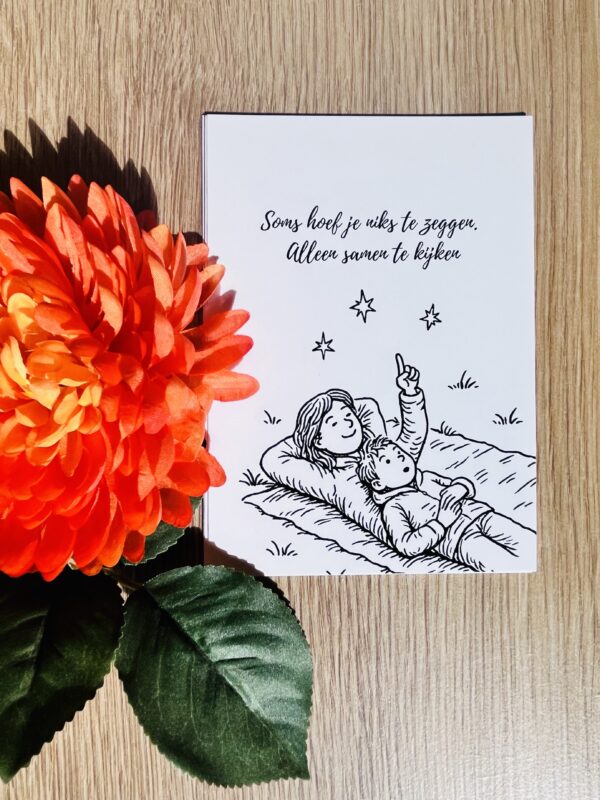 Soms hoef je niks te zeggen.
Alleen samen te kijken